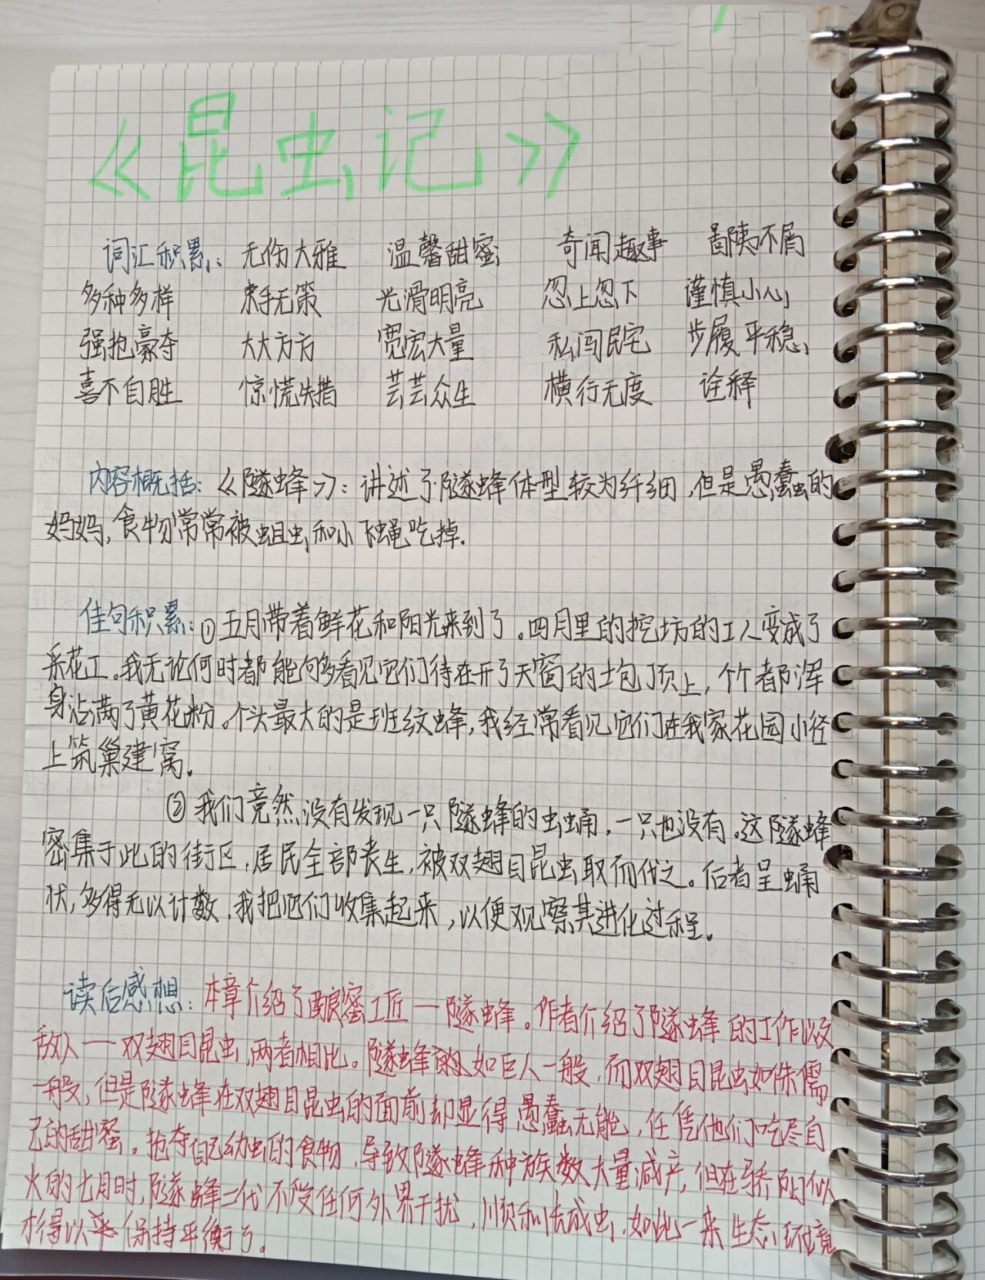 《昆虫记》
词汇积累: 无伤大雅 温馨甜蜜 奇闻趣事 鄙陋不屑
多种多样 束手无策 光滑明亮 忽上忽下 谨慎小心
强抱豪夺 大大方方 宽宏大量 私闯民宅 步履平稳
喜不自胜 惊慌失措 芸芸众生 横行无度 诠释
内容概括:《隧蜂》:讲述了隧蜂体型较为纤细,但是愚蠢的
妈妈,食物常常被蛆虫和小飞蝇吃掉.
佳句积累:①五月带着鲜花和阳光来到了。四月里的挖坊的工人变成了
采花工。我无论何时都能够多看见它们待在开了天窗的土包顶上,个个都浑
身沾满了黄花粉。个头最大的是班纹蜂,我经常看见它们在我家花园小径
上筑巢建窝。
②我们竟然没有发现一只隧蜂的虫蛹,一只也没有。这隧蜂
密集于此的街区,居民全部丧生,被双翅目昆虫取而代之。后者呈蛹
状,多得无以计数,我把它们收集起来,以便观察其进化过程。
读后感想:本章介绍了酿蜜工匠一隧蜂。作者介绍了隧蜂的工作以及
敌人一一双翅目昆虫,两者相比。隧蜂如巨人一般,而双翅目昆虫如侏儒
一般,但是隧蜂在双翅目昆虫的面前却显得愚蠢无能,任凭他们吃尽自
己的甜蜜。抢夺自己幼虫的食物,导致隧蜂种族数大量减产,但在骄阳似
火的七月时,隧蜂二代不受任何外界干扰,顺利长成虫,如此一来生态环境
才得以保持平衡了。